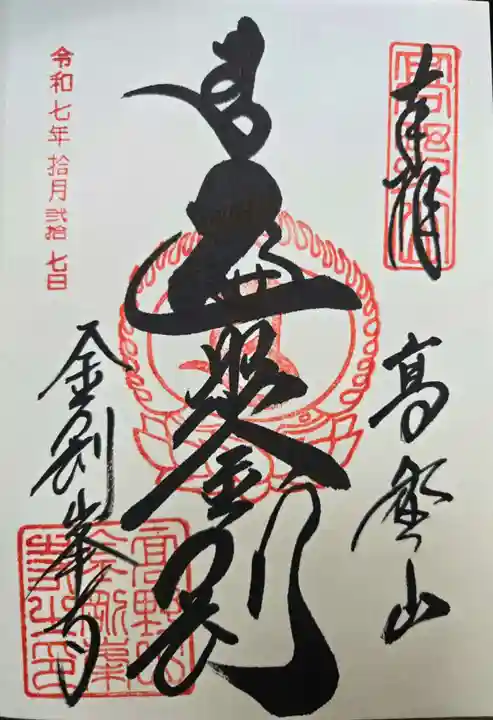 奉拝
高野山
遍照金剛
金剛峯寺
令和七年 拾月 弐拾七日
高野山
金剛峯
寺之印